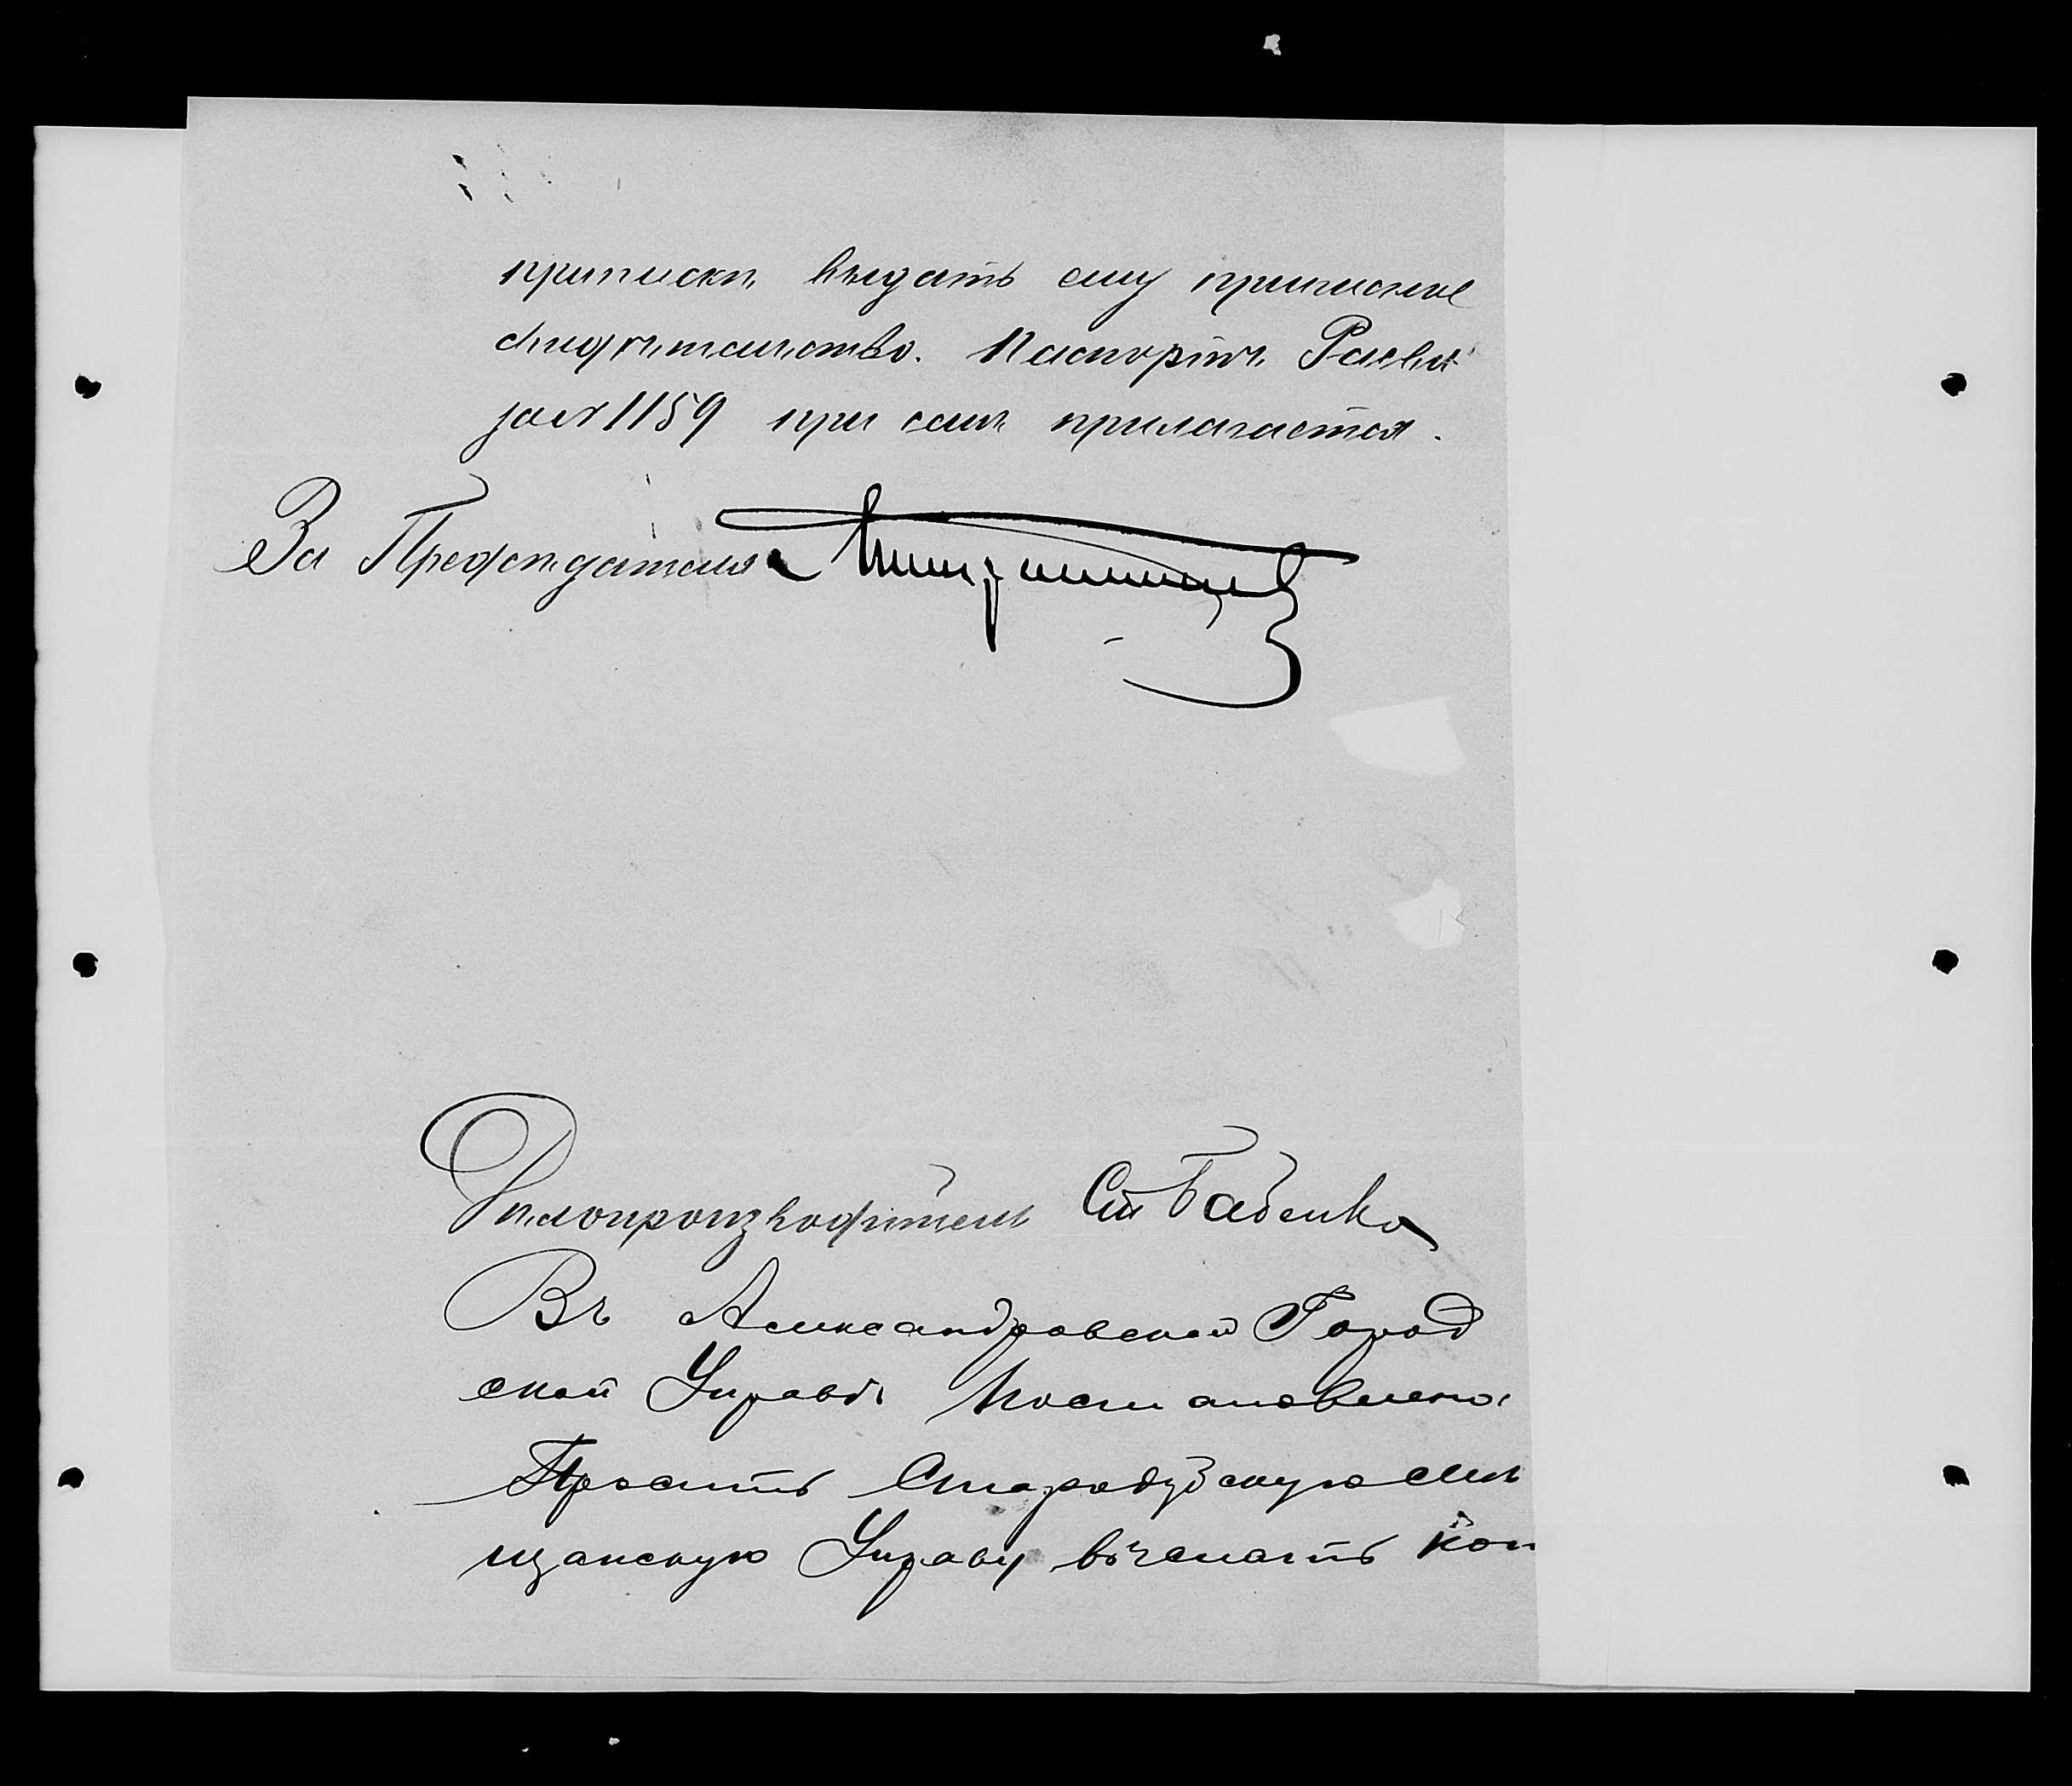 припискѣ выдать ему приписное
свидѣтельство. Паспортъ Раева
за № 1159 при семъ прилагается.
За Предсѣдателя
Дѣлопроизводитель Ст Бабенко
Въ Александровской Город
ской Управѣ постановлено:
Просить Стародубскую Мѣ
щанскую Управу выслать коп